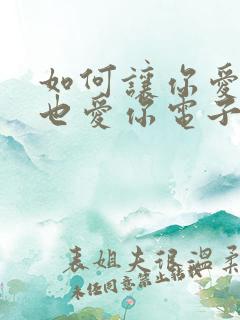 如何讓你愛
也愛你電子
表姐夫很溫柔
未任同意禁止轉載